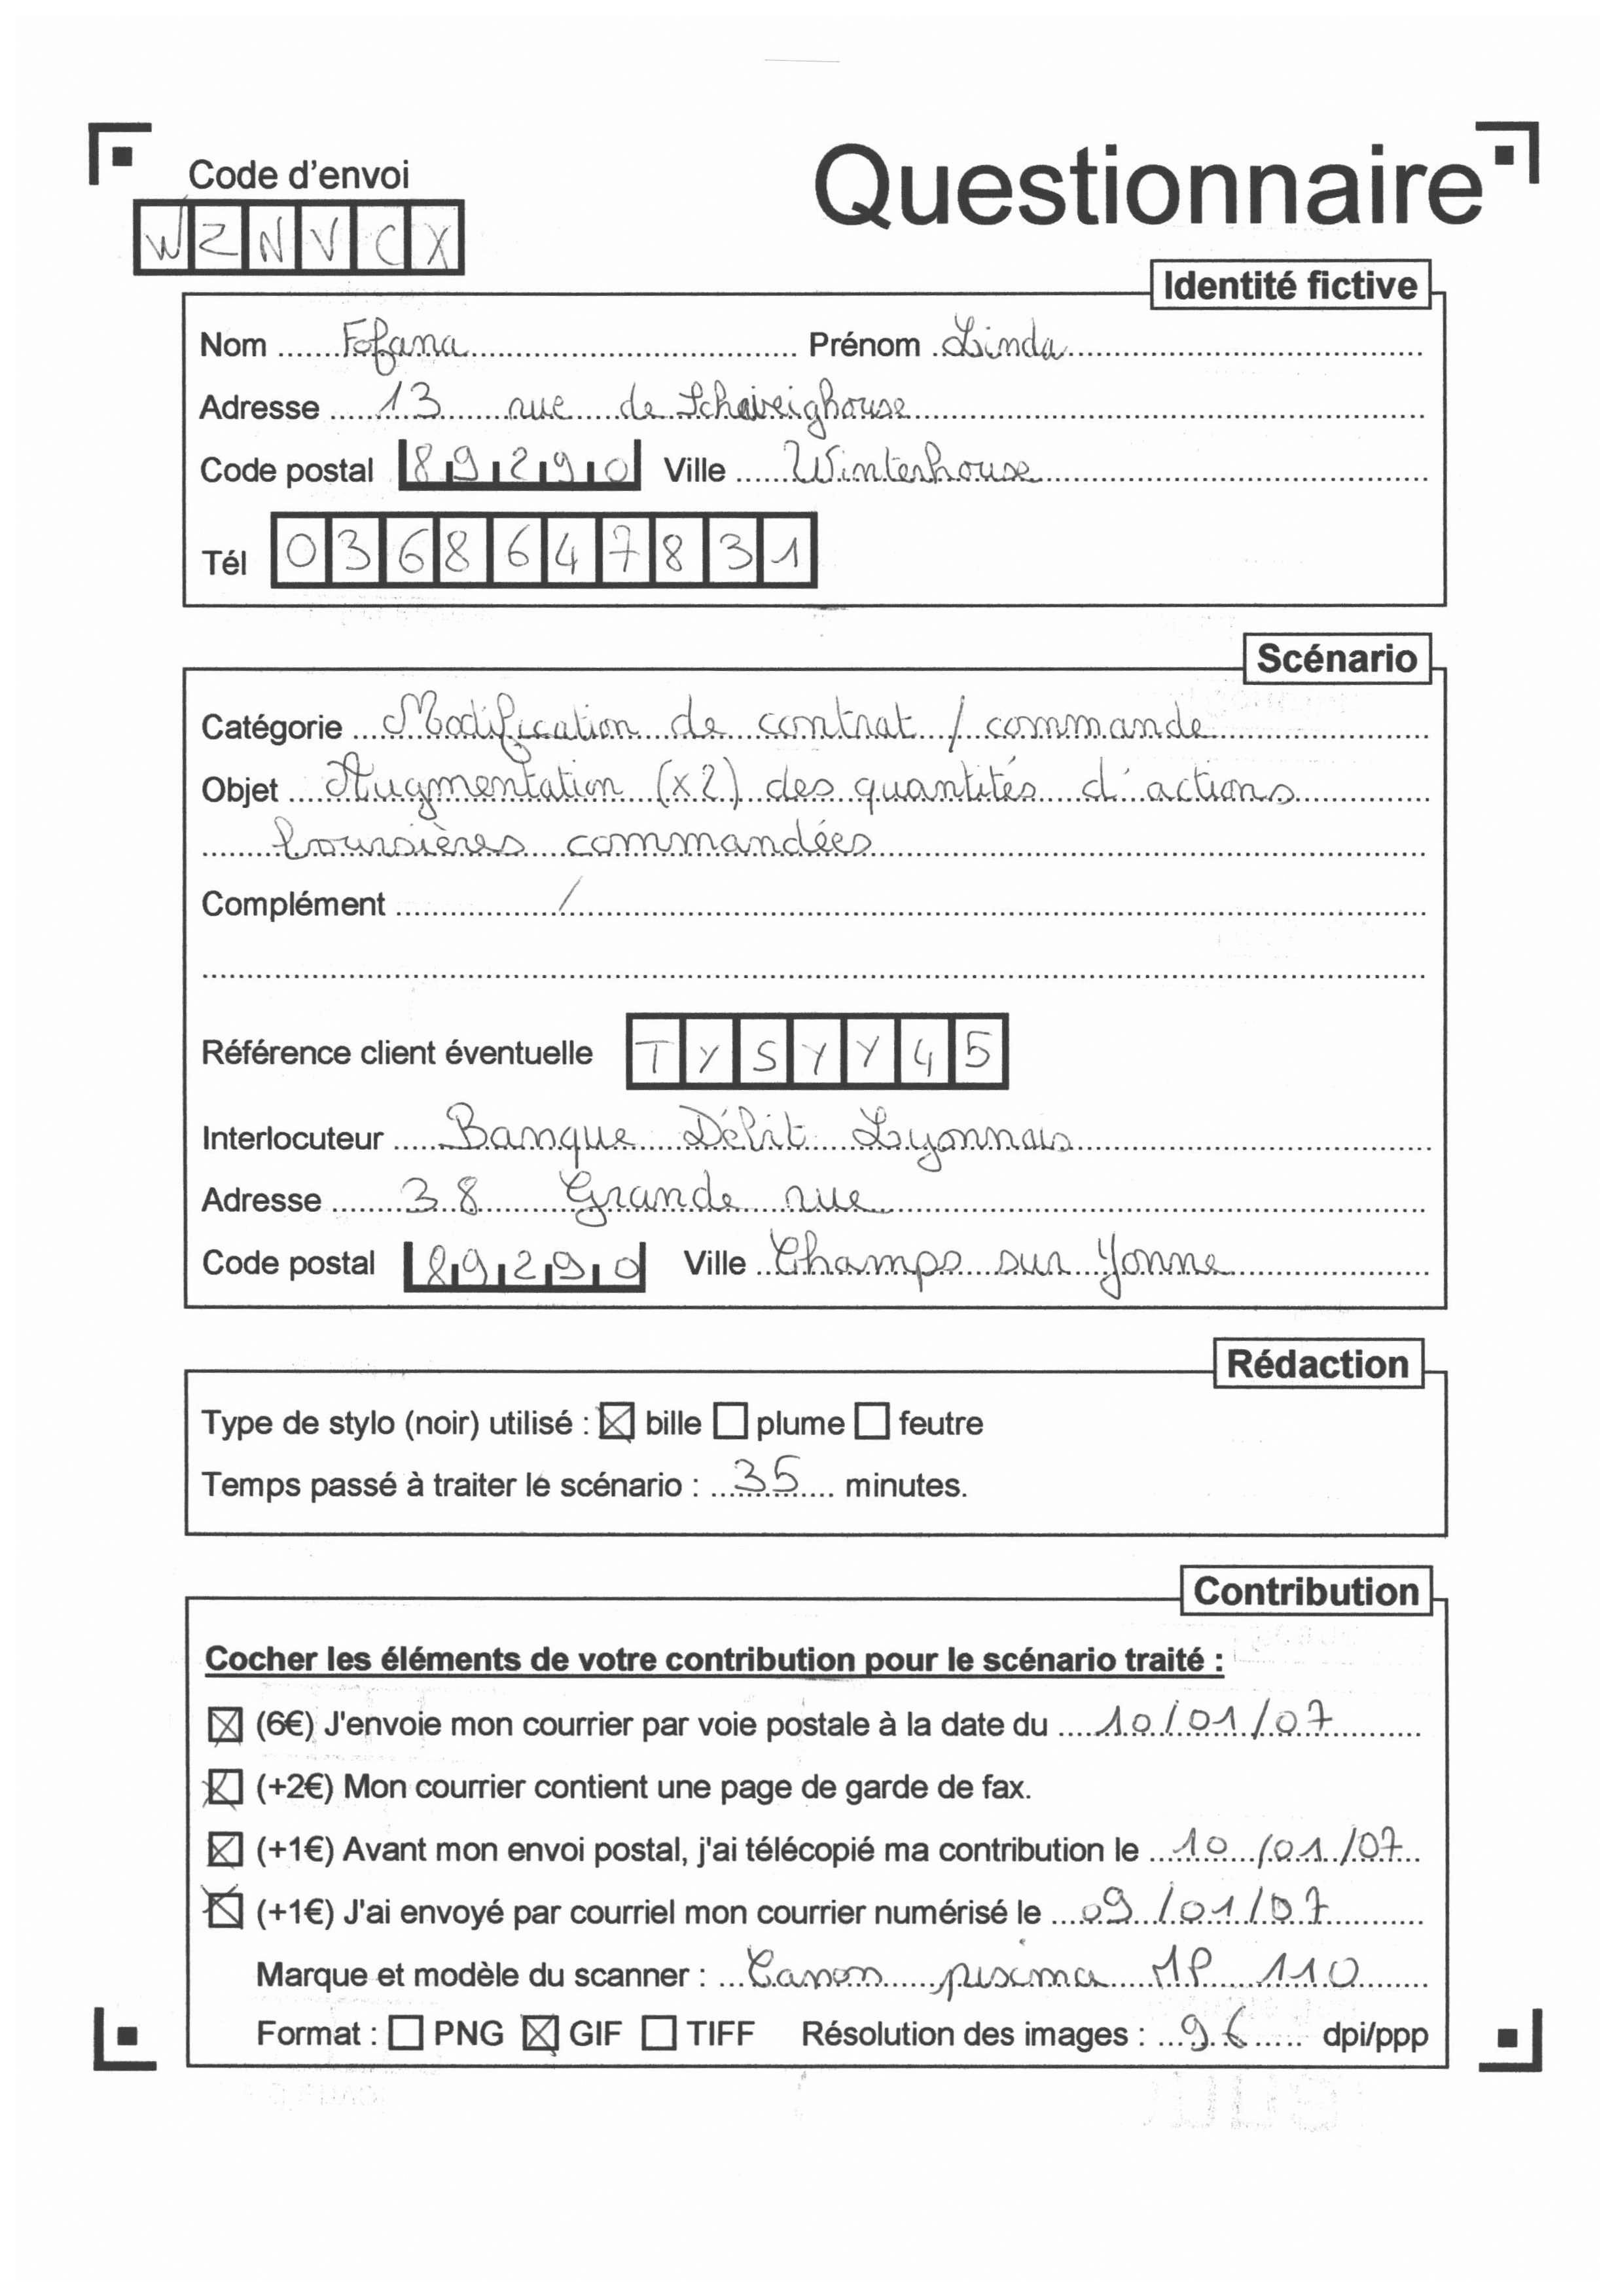 Code d'envoi
Questionnaire
WZNVCX
Identité fictive
Nom Fofana Prénom Linda
Adresse 13 rue de Schweighouse
Code postal 89290 Ville Winterhouse
Tél 0368647831
Scénario
Catégorie Modification de contrat / commande
Objet Augmentation (x2) des quantités d'actions
boursières commandées
Complément /
Référence client éventuelle TYSYY45
Interlocuteur Banque Débit Lyonnais
Adresse 38 Grande rue
Code postal 89290 Ville Champs sur Yonne
Rédaction
Type de stylo (noir) utilisé : ☒ bille ☐ plume ☐ feutre
Temps passé à traiter le scénario : 35 minutes.
Contribution
Cocher les éléments de votre contribution pour le scénario traité :
☒ (6€) J'envoie mon courrier par voie postale à la date du 10/01/07
☒ (+2€) Mon courrier contient une page de garde de fax.
☒ (+1€) Avant mon envoi postal, j'ai télécopié ma contribution le 10/01/07
☒ (+1€) J'ai envoyé par courriel mon courrier numérisé le 09/01/07
Marque et modèle du scanner : Canon pixma MP 110
Format : ☐ PNG ☒ GIF ☐ TIFF Résolution des images : 96 dpi/ppp